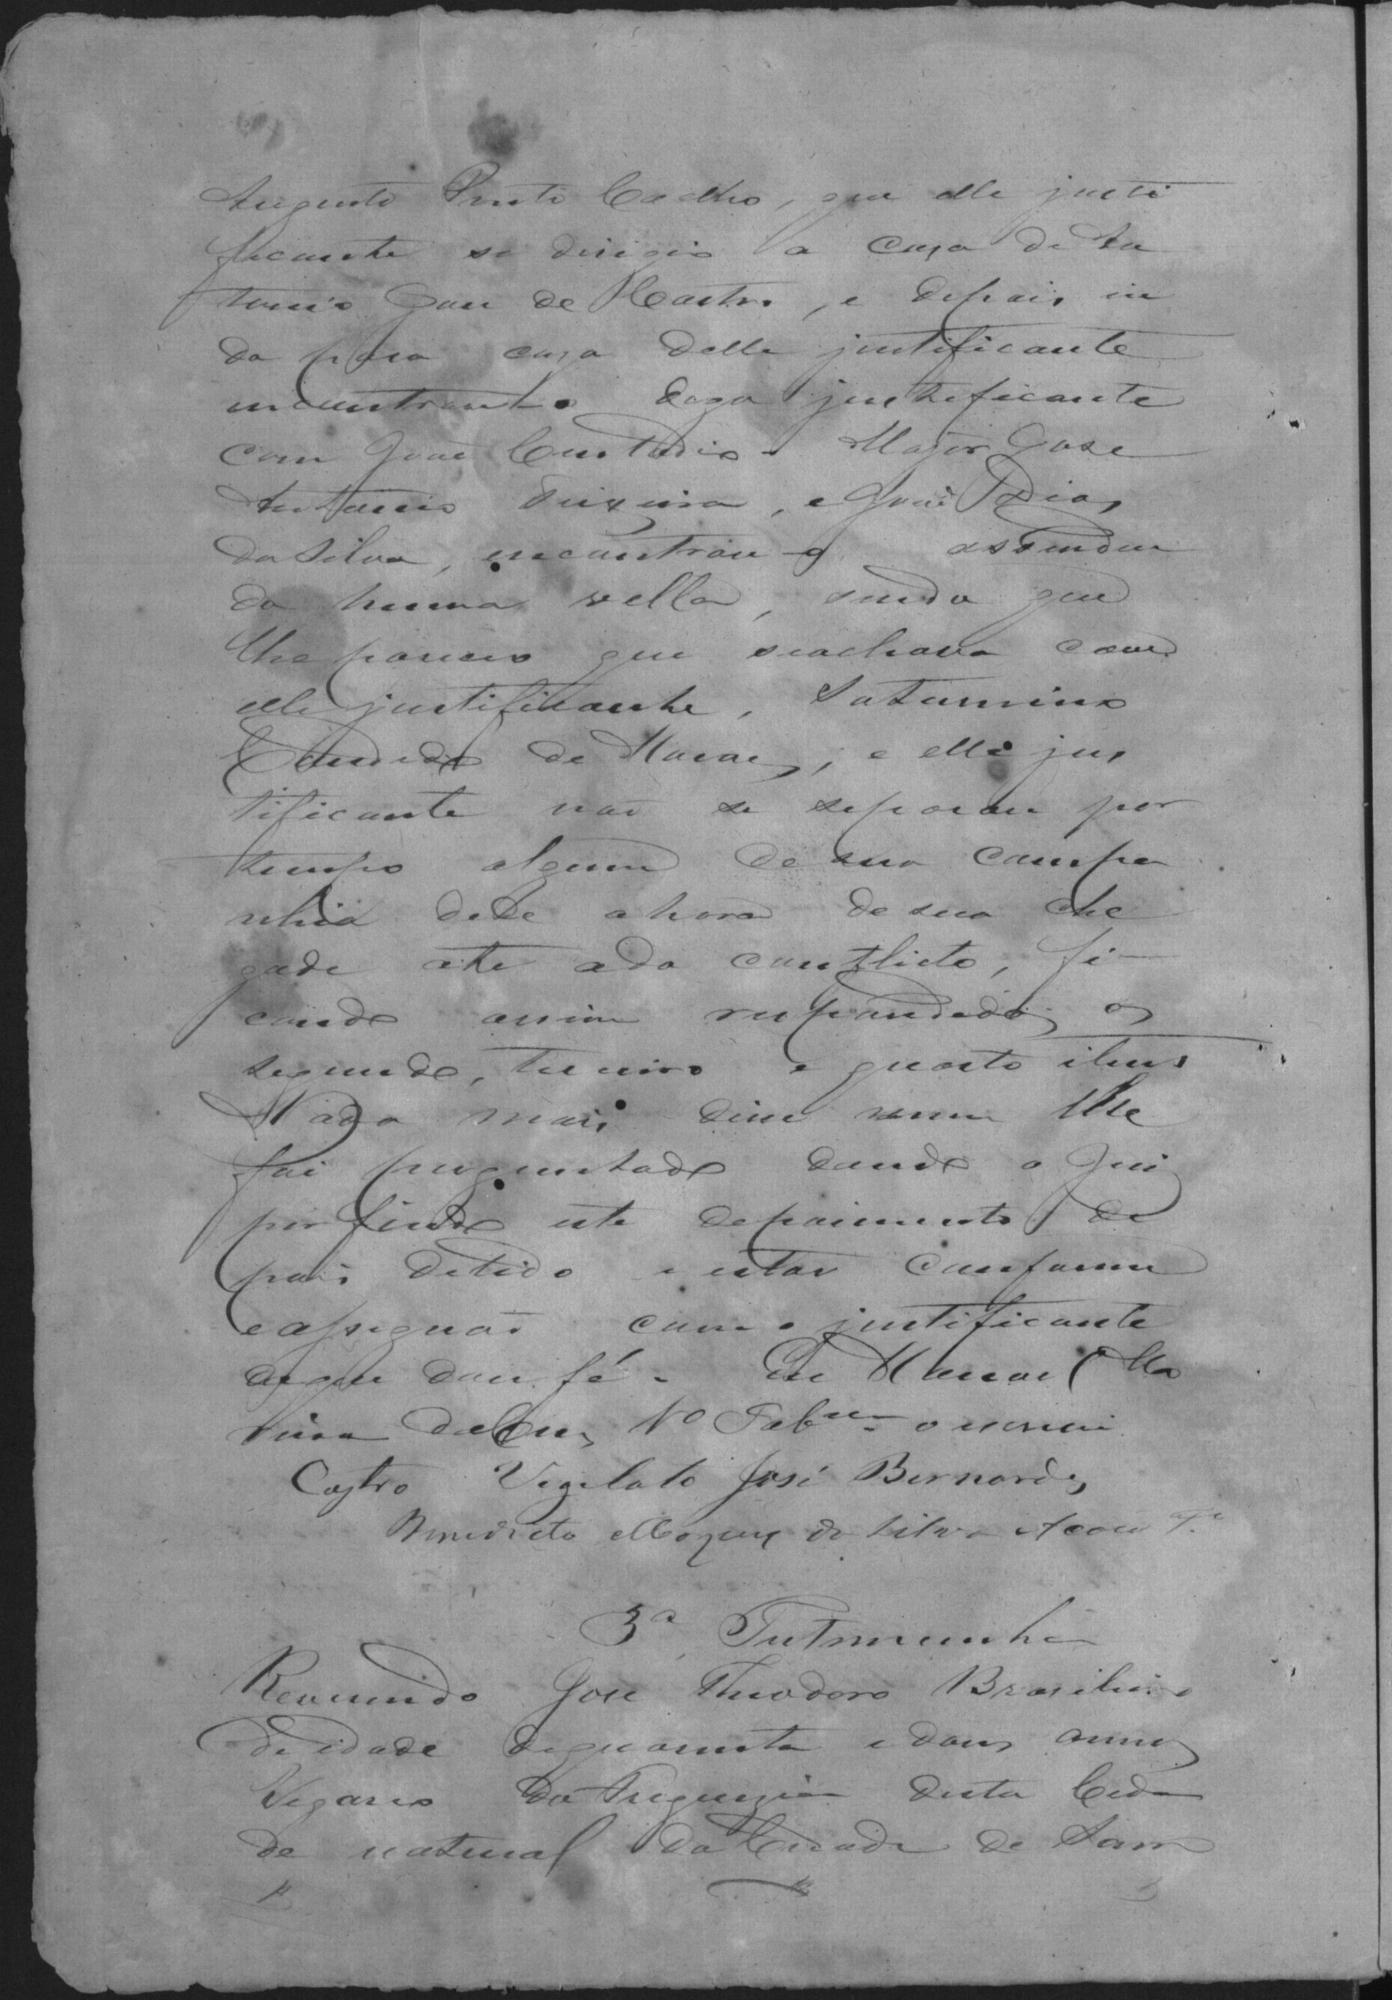 Augusto Pinto Coelho, que elle justi
ficante se dirigio a caza de An
tonio José de Castro, e depois in
do para caza delle justificante
incontrando logo justificante
com João Custodio Major Jose
Antonio Teixeira, e João Dias
da Silva, incontrou-o assenden
do huma vella, sendo que
lhe pareceo que seachava com
elle justificante, Saturnino
Candido de Moraes, e elle jus
tificante não se separou por
tempo algum de sua compa
nhia dede ahora desua che
gada athe ado conflicto, fi-
cando assim respondidos os
segundo, terceiro e quarto itens
Nada mais disse nem lhe
foi preguntado dando o Juiz
por findo este depoimento de
pois delido e estar conforme
e assignão com o justificante
doque dou fé. Eu Manoel
da Cruz escrevi
Castro Vigilato José Bernardes
Benedicto Marques da Silva
3ª Testemunha
Reverendo Jose Theodoro Brasileiro
de idade dequarenta e dous annos
Vigario da Freguezia desta Cida
de natural da Cidade de Sam